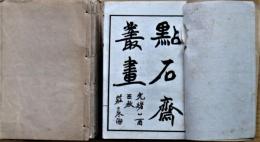 點石齋
叢畫
光緒乙酉